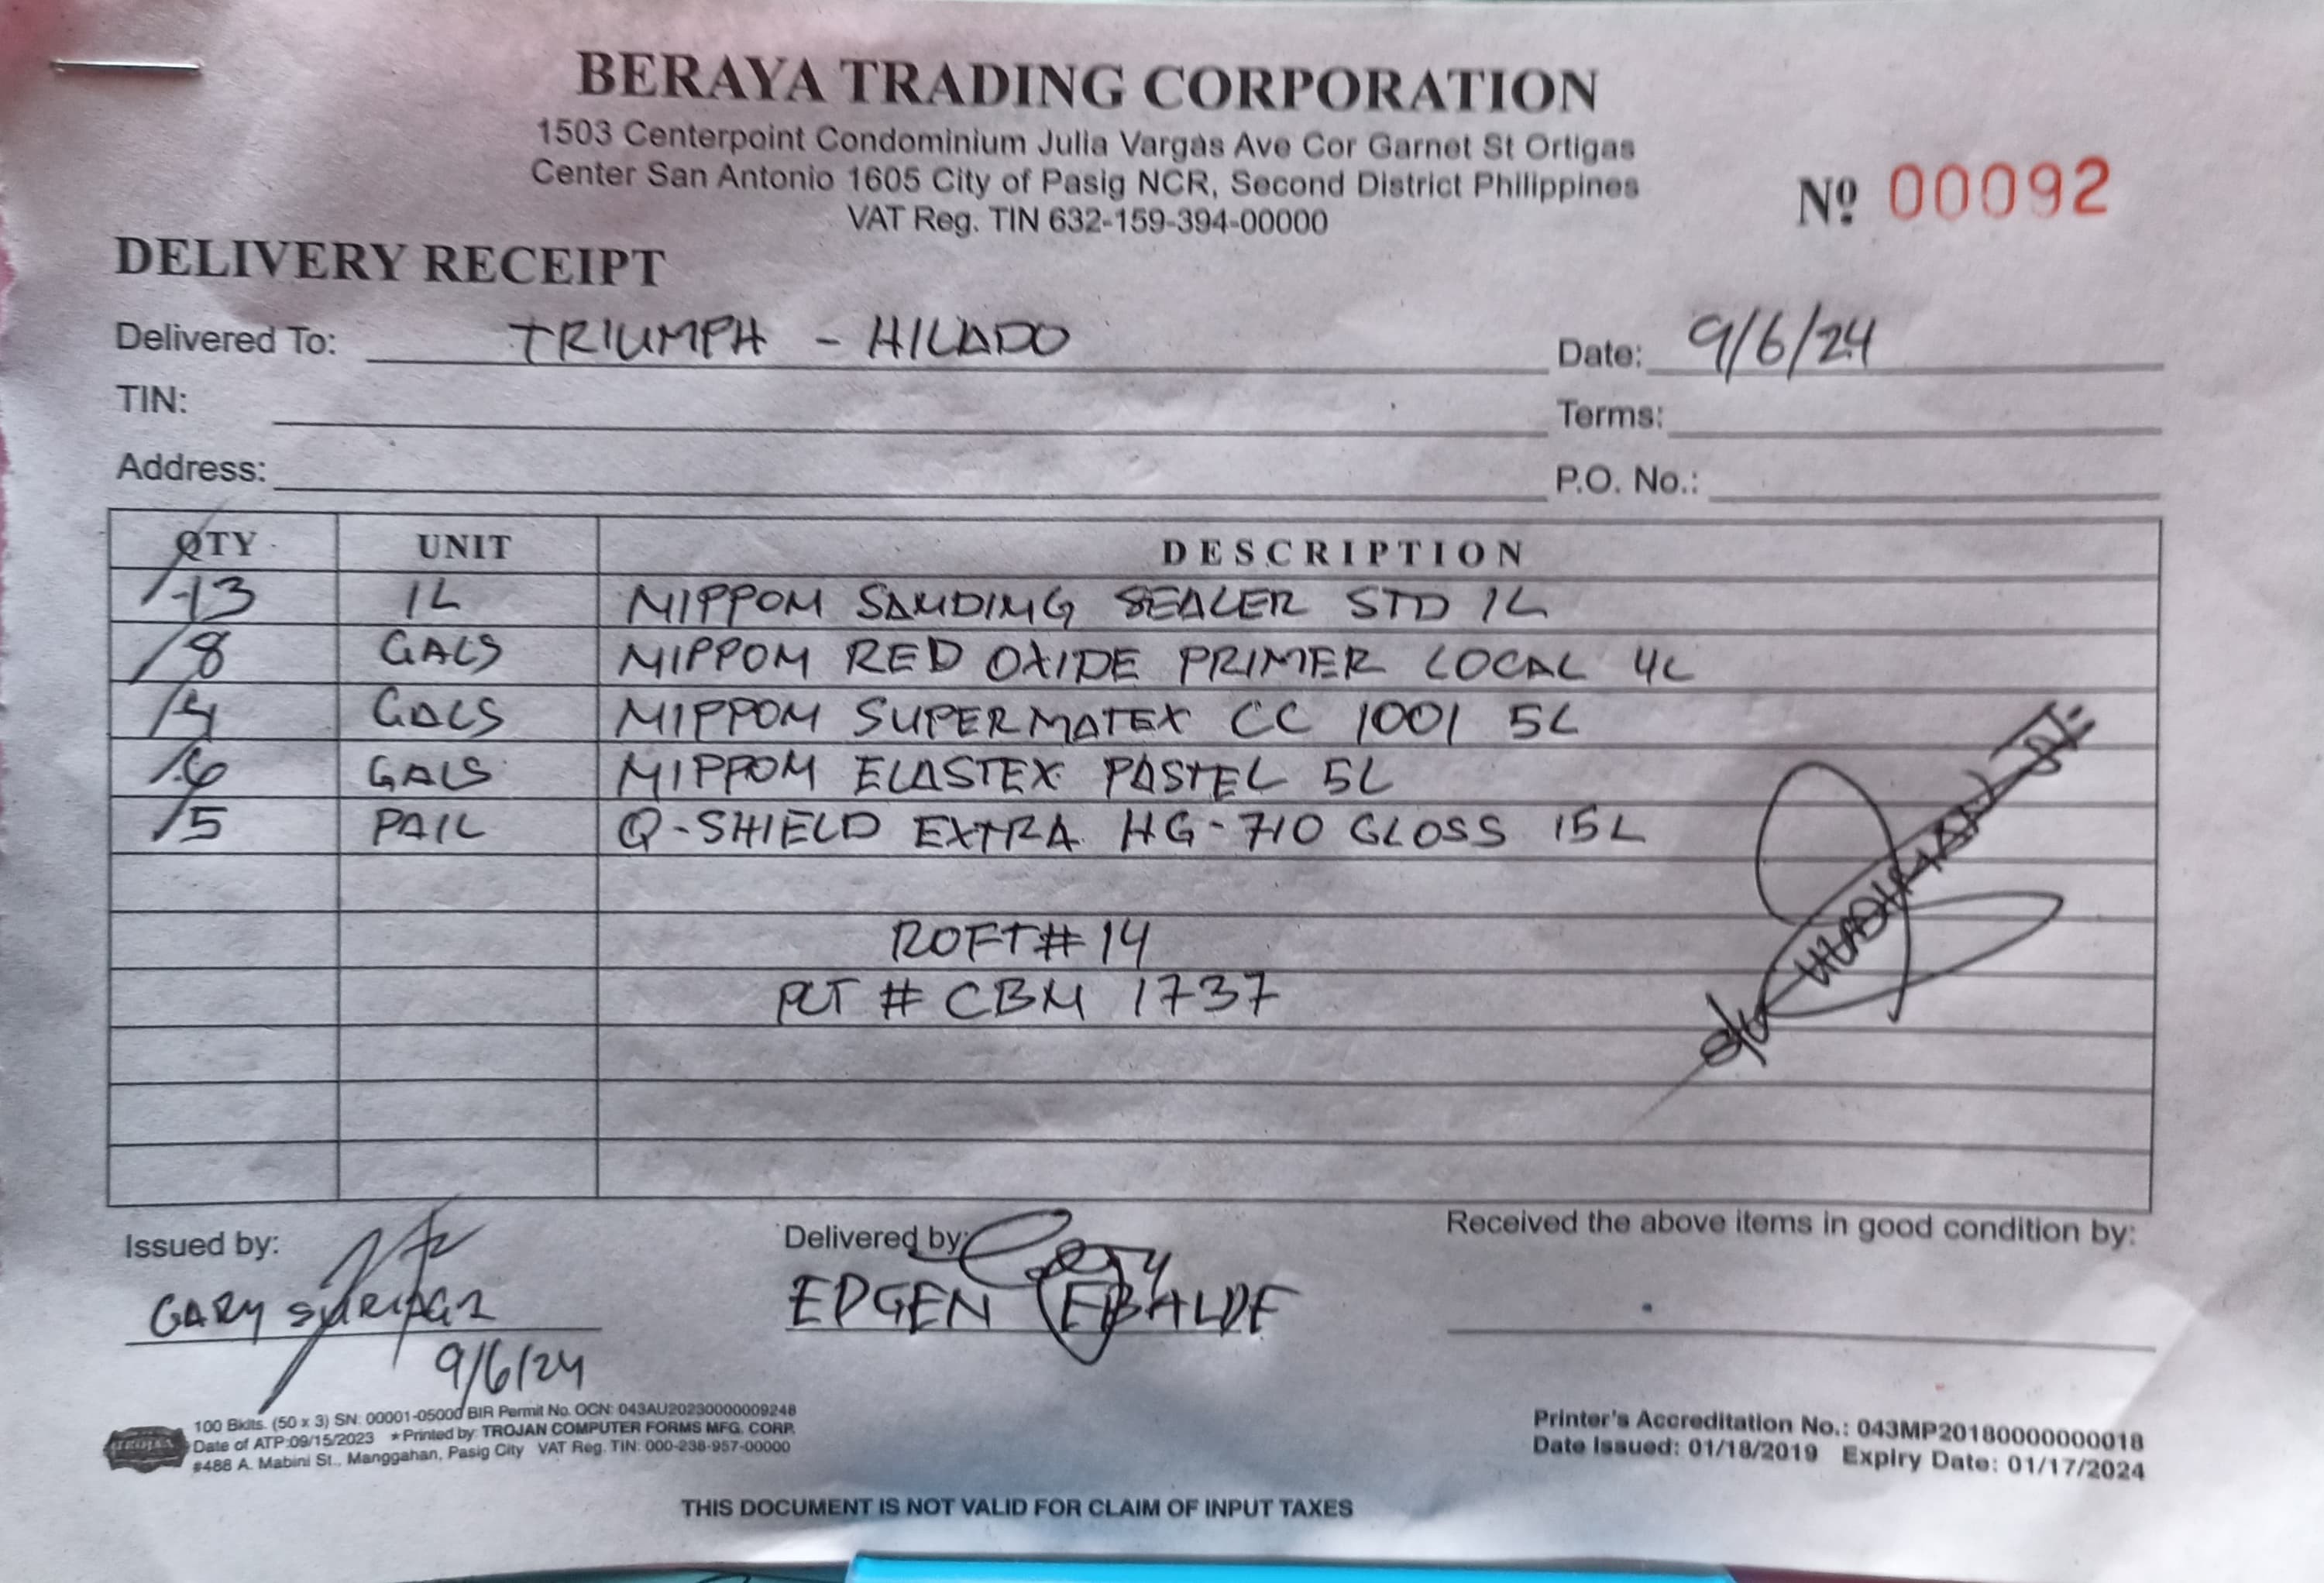 BERAYA TRADING CORPORATION
1503 Centerpoint Condominium Julia Vargas Ave Cor Garnet St Ortigas
Center San Antonio 1605 City of Pasig NCR, Second District Philippines
VAT Reg. TIN 632-159-394-00000
Nº 00092
DELIVERY RECEIPT
Delivered To: TRIUMPH - HILADO
Date: 9/6/24
TIN:
Terms:
Address:
P.O. No.:
QTY UNIT DESCRIPTION
13 1L NIPPON SANDING SEALER STD 1L
8 GALS NIPPON RED OXIDE PRIMER LOCAL 4L
4 GALS NIPPON SUPERMATEX CC 1001 5L
6 GALS NIPPON ELASTEX PASTEL 5L
5 PAIL Q-SHIELD EXTRA HG-710 GLOSS 15L
ROFT# 14
PLT # CBM 1737
Issued by:
GARY
9/6/24
Delivered by:
EDGEN EBALDE
Received the above items in good condition by:
100 Bklts. (50 x 3) SN: 00001-05000 BIR Permit No. OCN: 043AU20230000009248
Date of ATP:09/15/2023 * Printed by: TROJAN COMPUTER FORMS MFG. CORP.
#488 A. Mabini St., Manggahan, Pasig City VAT Reg. TIN: 000-238-957-00000
Printer's Accreditation No.: 043MP20180000000018
Date Issued: 01/18/2019 Expiry Date: 01/17/2024
THIS DOCUMENT IS NOT VALID FOR CLAIM OF INPUT TAXES